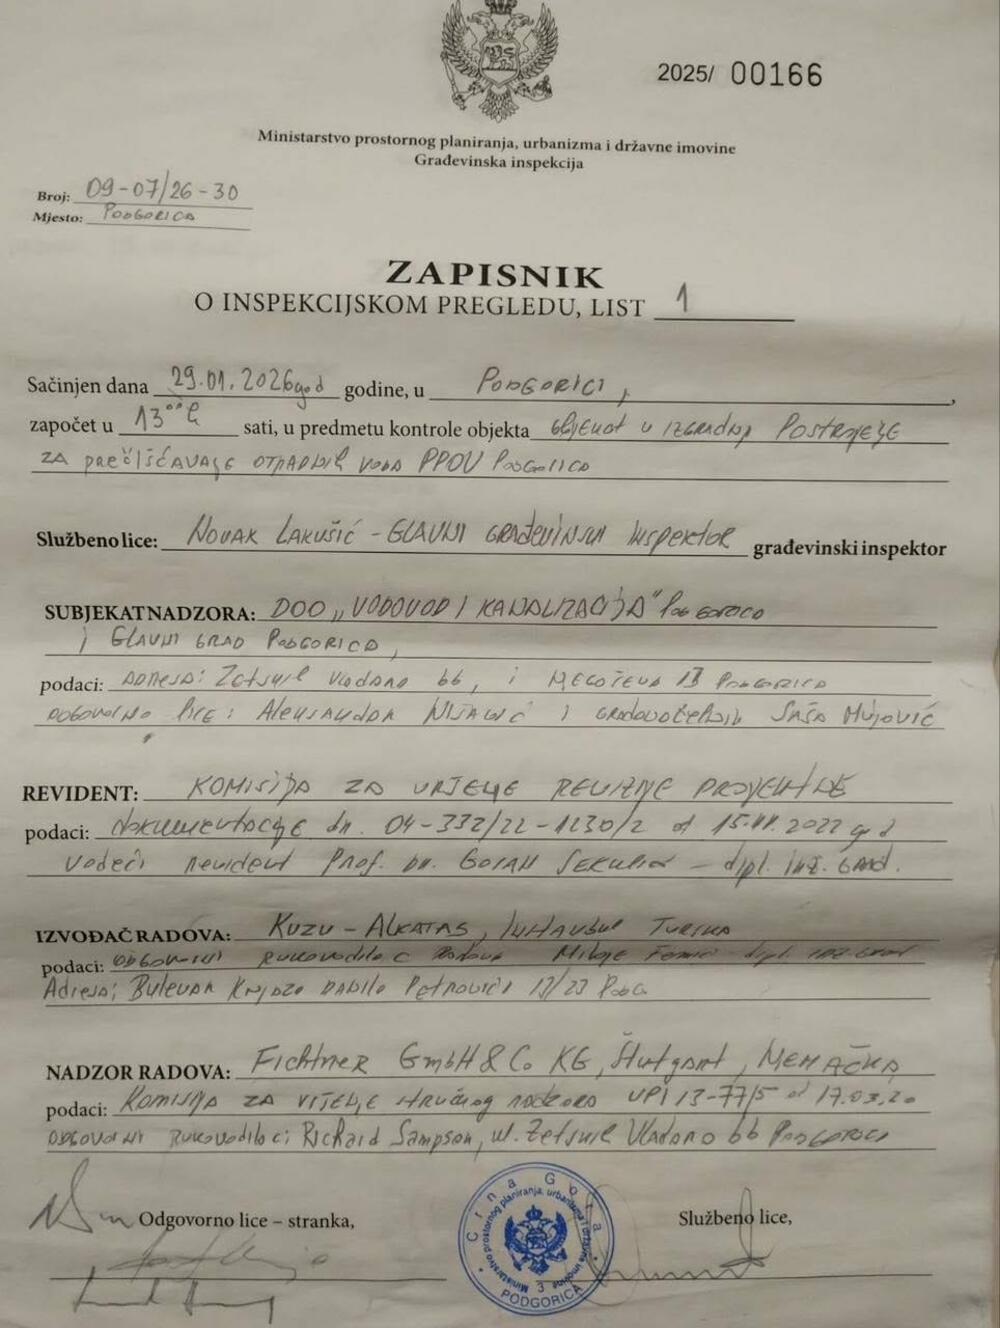 2025/ 00166
Ministarstvo prostornog planiranja, urbanizma i državne imovine
Građevinska inspekcija
Broj: 09-07/26-30
Mjesto: PODGORICA
ZAPISNIK
O INSPEKCIJSKOM PREGLEDU, LIST 1
Sačinjen dana 29.01.2026god godine, u PODGORICI,
započet u 13⁰⁰ h sati, u predmetu kontrole objekta objekat u izgradnji POSTROJENJE
ZA prečišćavanje OTPADNIH VODA PPOV PODGORICA
Službeno lice: NOVAK LAKUŠIĆ - GLAVNI GRAĐEVINSKI INSPEKTOR građevinski inspektor
SUBJEKAT NADZORA: DOO „VODOVOD I KANALIZACIJA" PODGORICA
I GLAVNI GRAD PODGORICA,
podaci: ADRESA: Zetskih Vladara bb, i NJEGOŠEVA 13 PODGORICA
ODGOVORNO lice: Aleksandar NIŠAVIĆ i GRADONAČELNIK SAŠA MUJOVIĆ
REVIDENT: KOMISIJA ZA VRŠENJE REVIZIJE PROJEKTNE
podaci: DOKUMENTACIJE br. 04-332/22-1230/2 od 2022 god
Vodeći revident Prof. dr. GORAN SEKULIĆ - dipl. inž. GRAĐ.
IZVOĐAČ RADOVA: KUZU - ALKATAS, TURSKA
podaci: ODGOVORNI RUKOVODILAC RADOVA Miloje dipl. inž građ
Adresa: Bulevar Knjaza DANILA PETROVIĆA 13/23 Podg.
NADZOR RADOVA: Fichtner GmbH & Co KG, Štutgart, NJEMAČKA
podaci: KOMISIJA ZA VRŠENJE stručnog nadzora UPI 13-77/5 od 17.03.20
ODGOVORNI RUKOVODILAC: Richard Sampson, ul. Zetskih Vladara bb PODGORICA
Odgovorno lice – stranka,
Službeno lice,
Crna Gora
Ministarstvo prostornog planiranja, urbanizma i državne imovine
3
PODGORICA